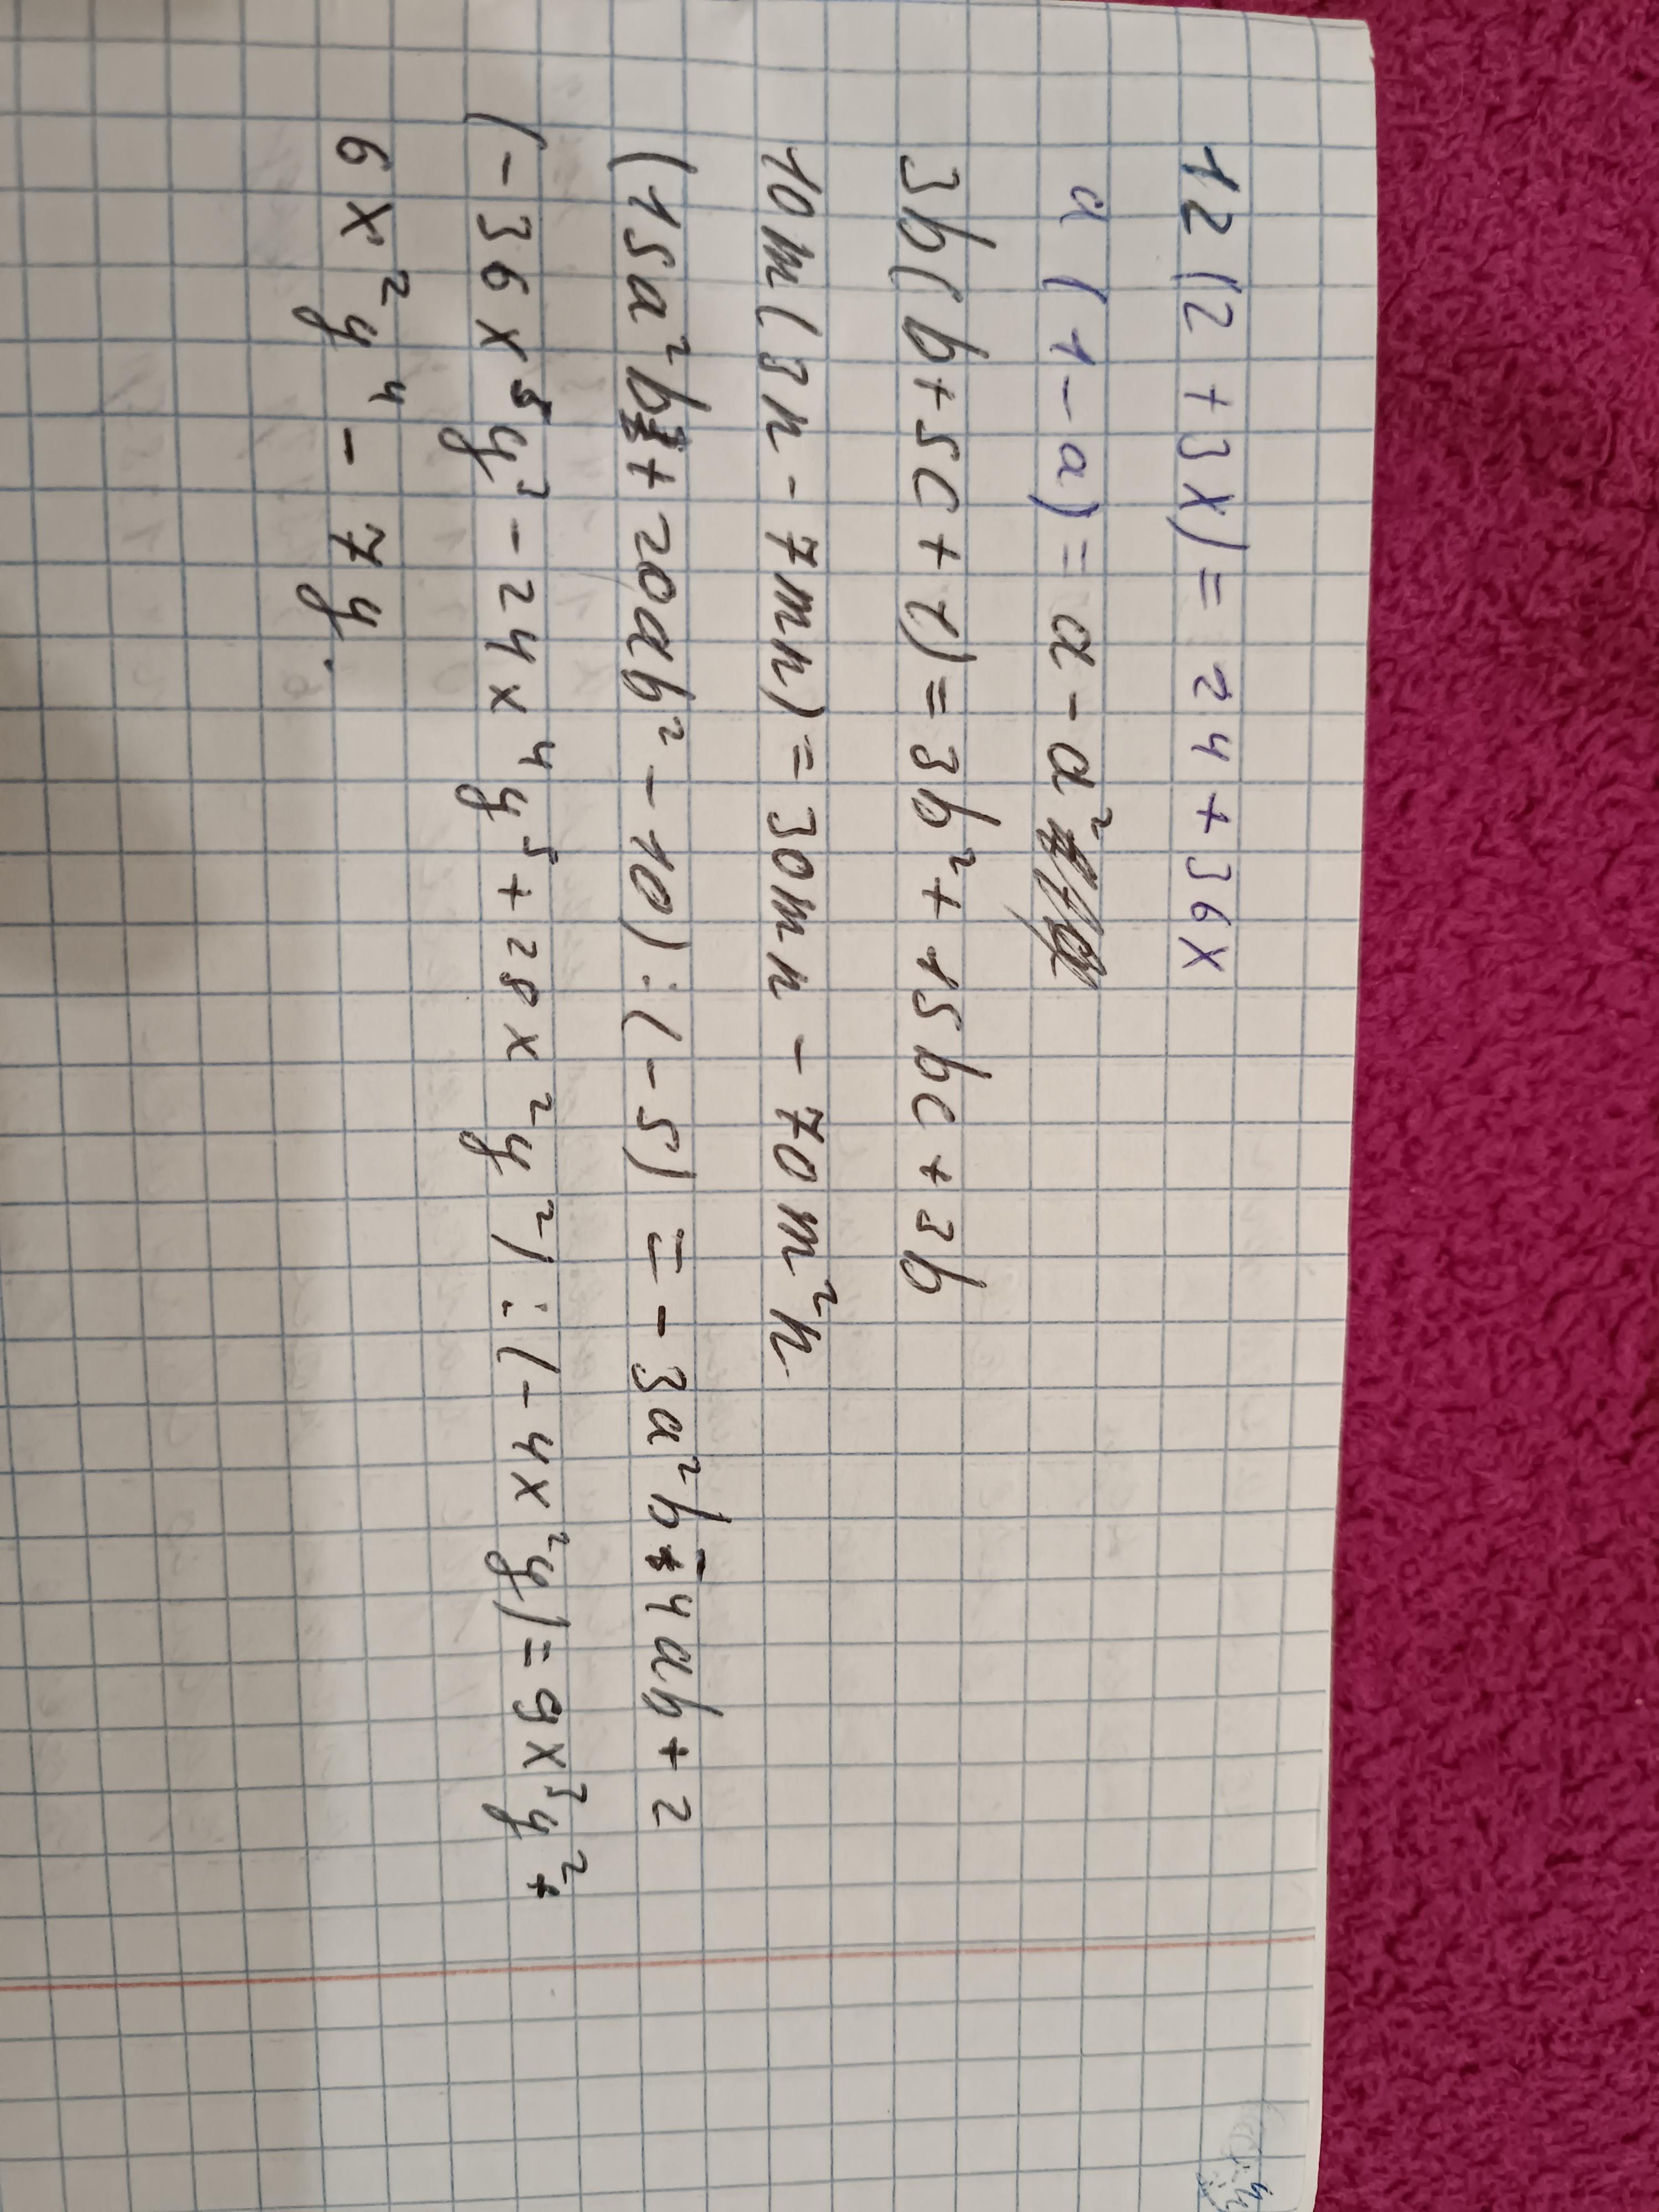 12(2+3x)=24+36x
a(1-a)=a-a²
3b(b+5c+1)=3b²+15bc+3b
10m(3n-7mn)=30mn-70m²n
(15a²b+20ab²-10):(-5)=-3a²b-4ab+2
(-36x⁵y³-24x⁴y⁵+28x²y²):(-4x²y)=9x³y²+
6x²y⁴-7y.